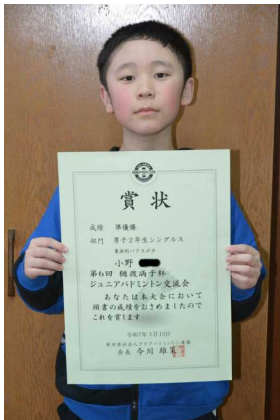 賞状
成績 準優勝
部門 男子2年生シングルス
小野
第6回 樋渡満子杯
ジュニアバドミントン交流会
あなたは本大会において
頭書の成績をおさめましたので
これを賞します